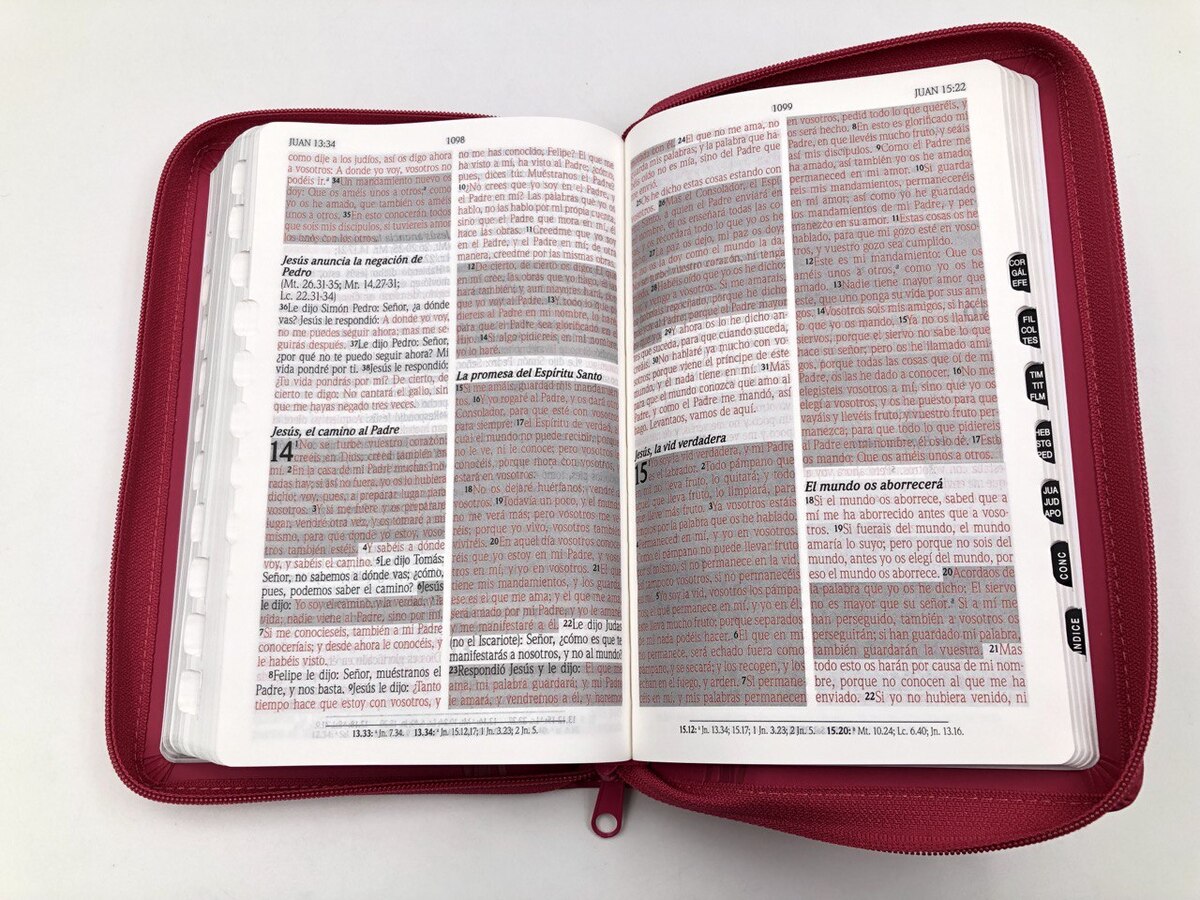 JUAN 13:34
1098
como dije a los judíos, así os digo ahora
a vosotros: A donde yo voy, vosotros no
podéis ir.ª 34Un mandamiento nuevo os
doy: Que os améis unos a otros;ª como
yo os he amado, que también os améis
unos a otros. 35En esto conocerán todos
que sois mis discípulos, si tuviereis amor
los unos con los otros.
Jesús anuncia la negación de
Pedro
(Mt. 26.31-35; Mr. 14.27-31;
Lc. 22.31-34)
36Le dijo Simón Pedro: Señor, ¿a dónde
vas? Jesús le respondió: A donde yo voy,
no me puedes seguir ahora; mas me se-
guirás después. 37Le dijo Pedro: Señor,
¿por qué no te puedo seguir ahora? Mi
vida pondré por ti. 38Jesús le respondió:
¿Tu vida pondrás por mí? De cierto, de
cierto te digo: No cantará el gallo, sin
que me hayas negado tres veces.
Jesús, el camino al Padre
14 1No se turbe vuestro corazón;
creéis en Dios, creed también en
mí. 2En la casa de mi Padre muchas mo-
radas hay; si así no fuera, yo os lo hubiera
dicho; voy, pues, a preparar lugar para
vosotros. 3Y si me fuere y os preparare
lugar, vendré otra vez, y os tomaré a mí
mismo, para que donde yo estoy, voso-
tros también estéis. 4Y sabéis a dónde
voy, y sabéis el camino. 5Le dijo Tomás:
Señor, no sabemos a dónde vas; ¿cómo,
pues, podemos saber el camino? 6Jesús
le dijo: Yo soy el camino, y la verdad, y la
vida; nadie viene al Padre, sino por mí.
7Si me conocieseis, también a mi Padre
conoceríais; y desde ahora le conocéis, y
le habéis visto.
8Felipe le dijo: Señor, muéstranos el
Padre, y nos basta. 9Jesús le dijo: ¿Tanto
tiempo hace que estoy con vosotros, y
no me has conocido, Felipe? El que me
ha visto a mí, ha visto al Padre; ¿cómo,
pues, dices tú: Muéstranos el Padre?
10¿No crees que yo soy en el Padre, y
el Padre en mí? Las palabras que yo os
hablo, no las hablo por mi propia cuenta,
sino que el Padre que mora en mí, él
hace las obras. 11Creedme que yo soy
en el Padre, y el Padre en mí; de otra
manera, creedme por las mismas obras.
12De cierto, de cierto os digo: El que
en mí cree, las obras que yo hago, él las hará
también; y aun mayores hará, por-
que yo voy al Padre. 13Y todo lo que
pidiereis al Padre en mi nombre, lo haré,
para que el Padre sea glorificado en el
Hijo. 14Si algo pidiereis en mi nombre,
yo lo haré.
La promesa del Espíritu Santo
15Si me amáis, guardad mis mandamien-
tos. 16Y yo rogaré al Padre, y os dará otro
Consolador, para que esté con vosotros
17el Espíritu de verdad, al
cual el mundo no puede recibir, porque
no le ve, ni le conoce; pero vosotros le
conocéis, porque mora con vosotros, y
18No os dejaré huérfanos; vendré a
vosotros. 19Todavía un poco, y el mundo
no me verá más; pero vosotros me
veréis; porque yo vivo, vosotros también
viviréis. 20En aquel día vosotros conoce-
réis que yo estoy en mi Padre, y vosotros
21El que
tiene mis mandamientos, y los guarda,
ése es el que me ama; y el que me ama,
será amado por mi Padre, y yo le amaré,
y me manifestaré a él. 22Le dijo Judas
(no el Iscariote): Señor, ¿cómo es que te
manifestarás a nosotros, y no al mundo?
23Respondió Jesús y le dijo: El que me
ama, mi palabra guardará; y mi Padre
le amará, y vendremos a él, y haremos
13.33: ª Jn. 7.34. 13.34: ª Jn. 15.12,17; 1 Jn. 3.23; 2 Jn. 5.
1099
JUAN 15:22
morada con él. 24El que no me ama, no
guarda mis palabras; y la palabra que ha-
béis oído no es mía, sino del Padre que
me envió.
25Os he dicho estas cosas estando con
vosotros. 26Mas el Consolador, el Espíritu
Santo, a quien el Padre enviará en
mi nombre, él os enseñará todas las cosas,
y os recordará todo lo que yo os he
dicho. 27La paz os dejo, mi paz os doy;
yo no os la doy como el mundo la da.
No se turbe vuestro corazón, ni tenga
miedo. 28Habéis oído que yo os he dicho:
Voy, y vengo a vosotros. Si me amarais,
os habríais regocijado, porque he dicho
que voy al Padre; porque el Padre mayor
es que yo. 29Y ahora os lo he dicho an-
tes que suceda, para que cuando suceda,
creáis. 30No hablaré ya mucho con vo-
sotros; porque viene el príncipe de este
mundo, y él nada tiene en mí. 31Mas
para que el mundo conozca que amo al
Padre, y como el Padre me mandó, así
hago. Levantaos, vamos de aquí.
Jesús, la vid verdadera
15 1Yo soy la vid verdadera, y mi Padre
es el labrador. 2Todo pámpano que
en mí no lleva fruto, lo quitará; y todo
aquel que lleva fruto, lo limpiará, para
que lleve más fruto. 3Ya vosotros estáis
limpios por la palabra que os he hablado.
Como el pámpano no puede llevar fruto
por sí mismo, si no permanece en la vid,
así tampoco vosotros, si no permanecéis
en mí. 5Yo soy la vid, vosotros los pámpa-
nos; el que permanece en mí, y yo en él,
éste lleva mucho fruto; porque separados
de mí nada podéis hacer. 6El que en mí
no permanece, será echado fuera como
pámpano, y se secará; y los recogen, y los
echan en el fuego, y arden. 7Si permane-
céis en mí, y mis palabras permanecen
en vosotros, pedid todo lo que queréis, y
os será hecho. 8En esto es glorificado mi
Padre, en que llevéis mucho fruto, y seáis
así mis discípulos. 9Como el Padre me
ha amado, así también yo os he amado;
permaneced en mi amor. 10Si guarda-
reis mis mandamientos, permaneceréis
en mi amor; así como yo he guardado
los mandamientos de mi Padre, y per-
manezco en su amor. 11Estas cosas os he
hablado, para que mi gozo esté en voso-
tros, y vuestro gozo sea cumplido.
12Este es mi mandamiento: Que os
améis unos a otros,ª como yo os he
amado. 13Nadie tiene mayor amor que
este, que uno ponga su vida por sus ami-
gos. 14Vosotros sois mis amigos, si hacéis
lo que yo os mando. 15Ya no os llamaré
siervos, porque el siervo no sabe lo que
hace su señor; pero os he llamado ami-
gos, porque todas las cosas que oí de mi
Padre, os las he dado a conocer. 16No me
elegisteis vosotros a mí, sino que yo os
elegí a vosotros, y os he puesto para que
vayáis y llevéis fruto, y vuestro fruto per-
manezca; para que todo lo que pidiereis
al Padre en mi nombre, él os lo dé. 17Esto
os mando: Que os améis unos a otros.
El mundo os aborrecerá
18Si el mundo os aborrece, sabed que a
mí me ha aborrecido antes que a voso-
tros. 19Si fuerais del mundo, el mundo
amaría lo suyo; pero porque no sois del
mundo, antes yo os elegí del mundo, por
eso el mundo os aborrece. 20Acordaos de
la palabra que yo os he dicho: El siervo
no es mayor que su señor.ª Si a mí me
han perseguido, también a vosotros os
perseguirán; si han guardado mi palabra,
también guardarán la vuestra. 21Mas
todo esto os harán por causa de mi nom-
bre, porque no conocen al que me ha
enviado. 22Si yo no hubiera venido, ni
15.12: ª Jn. 13.34; 15.17; 1 Jn. 3.23; 2 Jn. 5. 15.20: ª Mt. 10.24; Lc. 6.40; Jn. 13.16.
COR
GÁL
EFE
FIL
COL
TES
TIM
TIT
FLM
HEB
STG
PED
JUA
JUD
APO
CONC
ÍNDICE